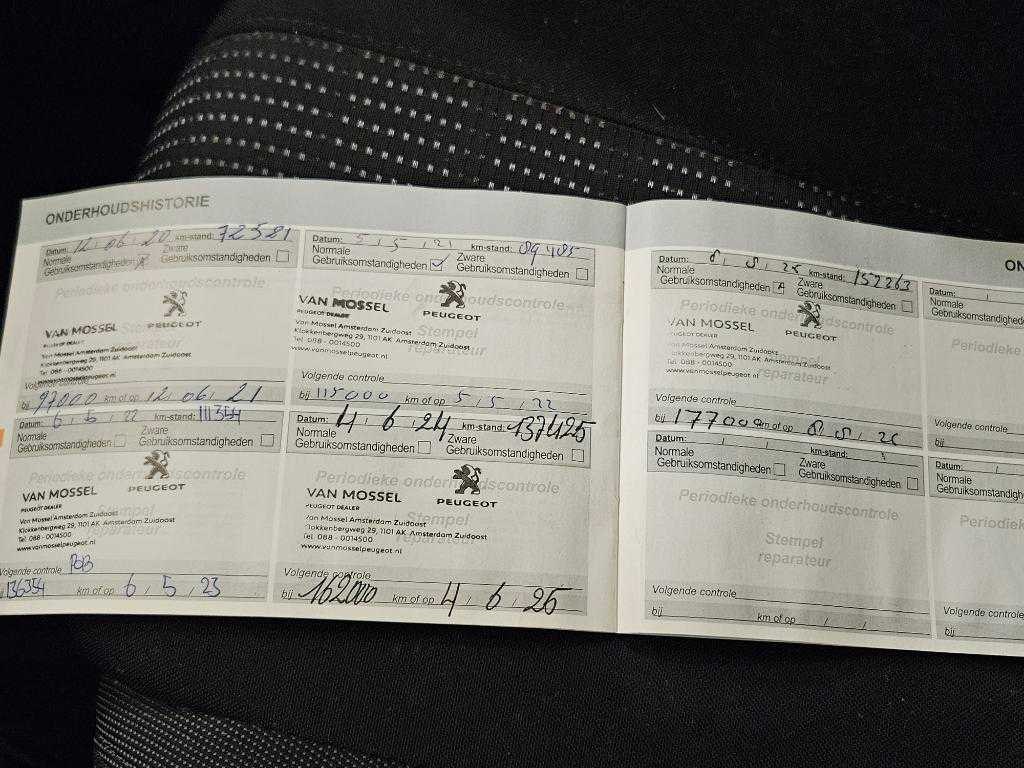 ONDERHOUDSHISTORIE
Datum: 12 / 06 / 20 km-stand: 72581
Normale Gebruiksomstandigheden
Zware Gebruiksomstandigheden
Periodieke onderhoudscontrole
Stempel
reparateur
VAN MOSSEL PEUGEOT
PEUGEOT DEALER
Van Mossel Amsterdam Zuidoost
Klokkenbergweg 29, 1101 AK Amsterdam Zuidoost
Tel 088 - 0014500
www.vanmosselpeugeot.nl
Volgende controle
bij 97000 km of op 12 / 06 / 21
Datum: 5 / 5 / 21 km-stand: 89485
Normale Gebruiksomstandigheden
Zware Gebruiksomstandigheden
Periodieke onderhoudscontrole
Stempel
reparateur
VAN MOSSEL PEUGEOT
PEUGEOT DEALER
Van Mossel Amsterdam Zuidoost
Klokkenbergweg 29, 1101 AK Amsterdam Zuidoost
Tel 088 - 0014500
www.vanmosselpeugeot.nl
Volgende controle
bij 115000 km of op 5 / 5 / 22
Datum: 6 / 5 / 22 km-stand: 111354
Normale Gebruiksomstandigheden
Zware Gebruiksomstandigheden
Periodieke onderhoudscontrole
Stempel
VAN MOSSEL PEUGEOT
PEUGEOT DEALER
Van Mossel Amsterdam Zuidoost
Klokkenbergweg 29, 1101 AK Amsterdam Zuidoost
Tel 088 - 0014500
www.vanmosselpeugeot.nl
Volgende controle
136354 km of op 6 / 5 / 23
Datum: 4 / 6 / 24 km-stand: 137425
Normale Gebruiksomstandigheden
Zware Gebruiksomstandigheden
Periodieke onderhoudscontrole
Stempel
reparateur
VAN MOSSEL PEUGEOT
PEUGEOT DEALER
Van Mossel Amsterdam Zuidoost
Klokkenbergweg 29, 1101 AK Amsterdam Zuidoost
Tel 088 - 0014500
www.vanmosselpeugeot.nl
Volgende controle
bij 162000 km of op 4 / 6 / 25
ON
Datum: 8 / 8 / 25 km-stand: 152263
Normale Gebruiksomstandigheden
Zware Gebruiksomstandigheden
Periodieke onderhoudscontrole
Stempel
reparateur
VAN MOSSEL PEUGEOT
PEUGEOT DEALER
Van Mossel Amsterdam Zuidoost
Klokkenbergweg 29, 1101 AK Amsterdam Zuidoost
Tel 088 - 0014500
www.vanmosselpeugeot.nl
Volgende controle
bij 177000 km of op 8 / 8 / 26
Datum: / /
Normale
Gebruiksomstandighed
Periodieke
Volgende controle
bij
Datum: / / km-stand:
Normale Gebruiksomstandigheden
Zware Gebruiksomstandigheden
Periodieke onderhoudscontrole
Stempel
reparateur
Volgende controle
bij km of op / /
Datum: /
Normale
Gebruiksomstandigh
Periodie
Volgende controle
bij